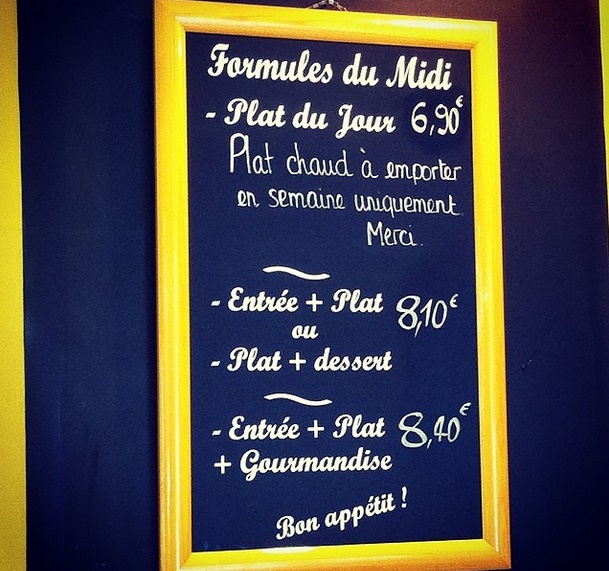 Formules du Midi
- Plat du Jour 6,90€
Plat chaud à emporter
en semaine uniquement.
Merci.
- Entrée + Plat 8,10€
ou
- Plat + dessert
- Entrée + Plat 8,40€
+ Gourmandise
Bon appétit !